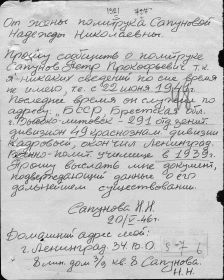 От жены политрука Сапуновой
Надежды Николаевны.
Прошу сообщить о политруке
Сапунов Петр Прокофьевич т.к.
я никаких сведений по сие время
не имею, т.е. с 22 июня 1941г.
Последнее время он служил по
адресу: БССР Брестская обл.
г. Высоко-литовск - 291 отд. зенит.
дивизион 49 краснознам. дивизии
Кадровый, окончил Ленинград.
Военно-полит. училище в 1939г.
Прошу выслать мне документ,
подтверждающий данные о его
дальнейшем существовании.
Сапунова Н.Н.
20/V-46г.
Домашний адрес мой:
г. Ленинград 34 В.О.
дом 3/9 кв. 8 Сапунова.
Н.Н.